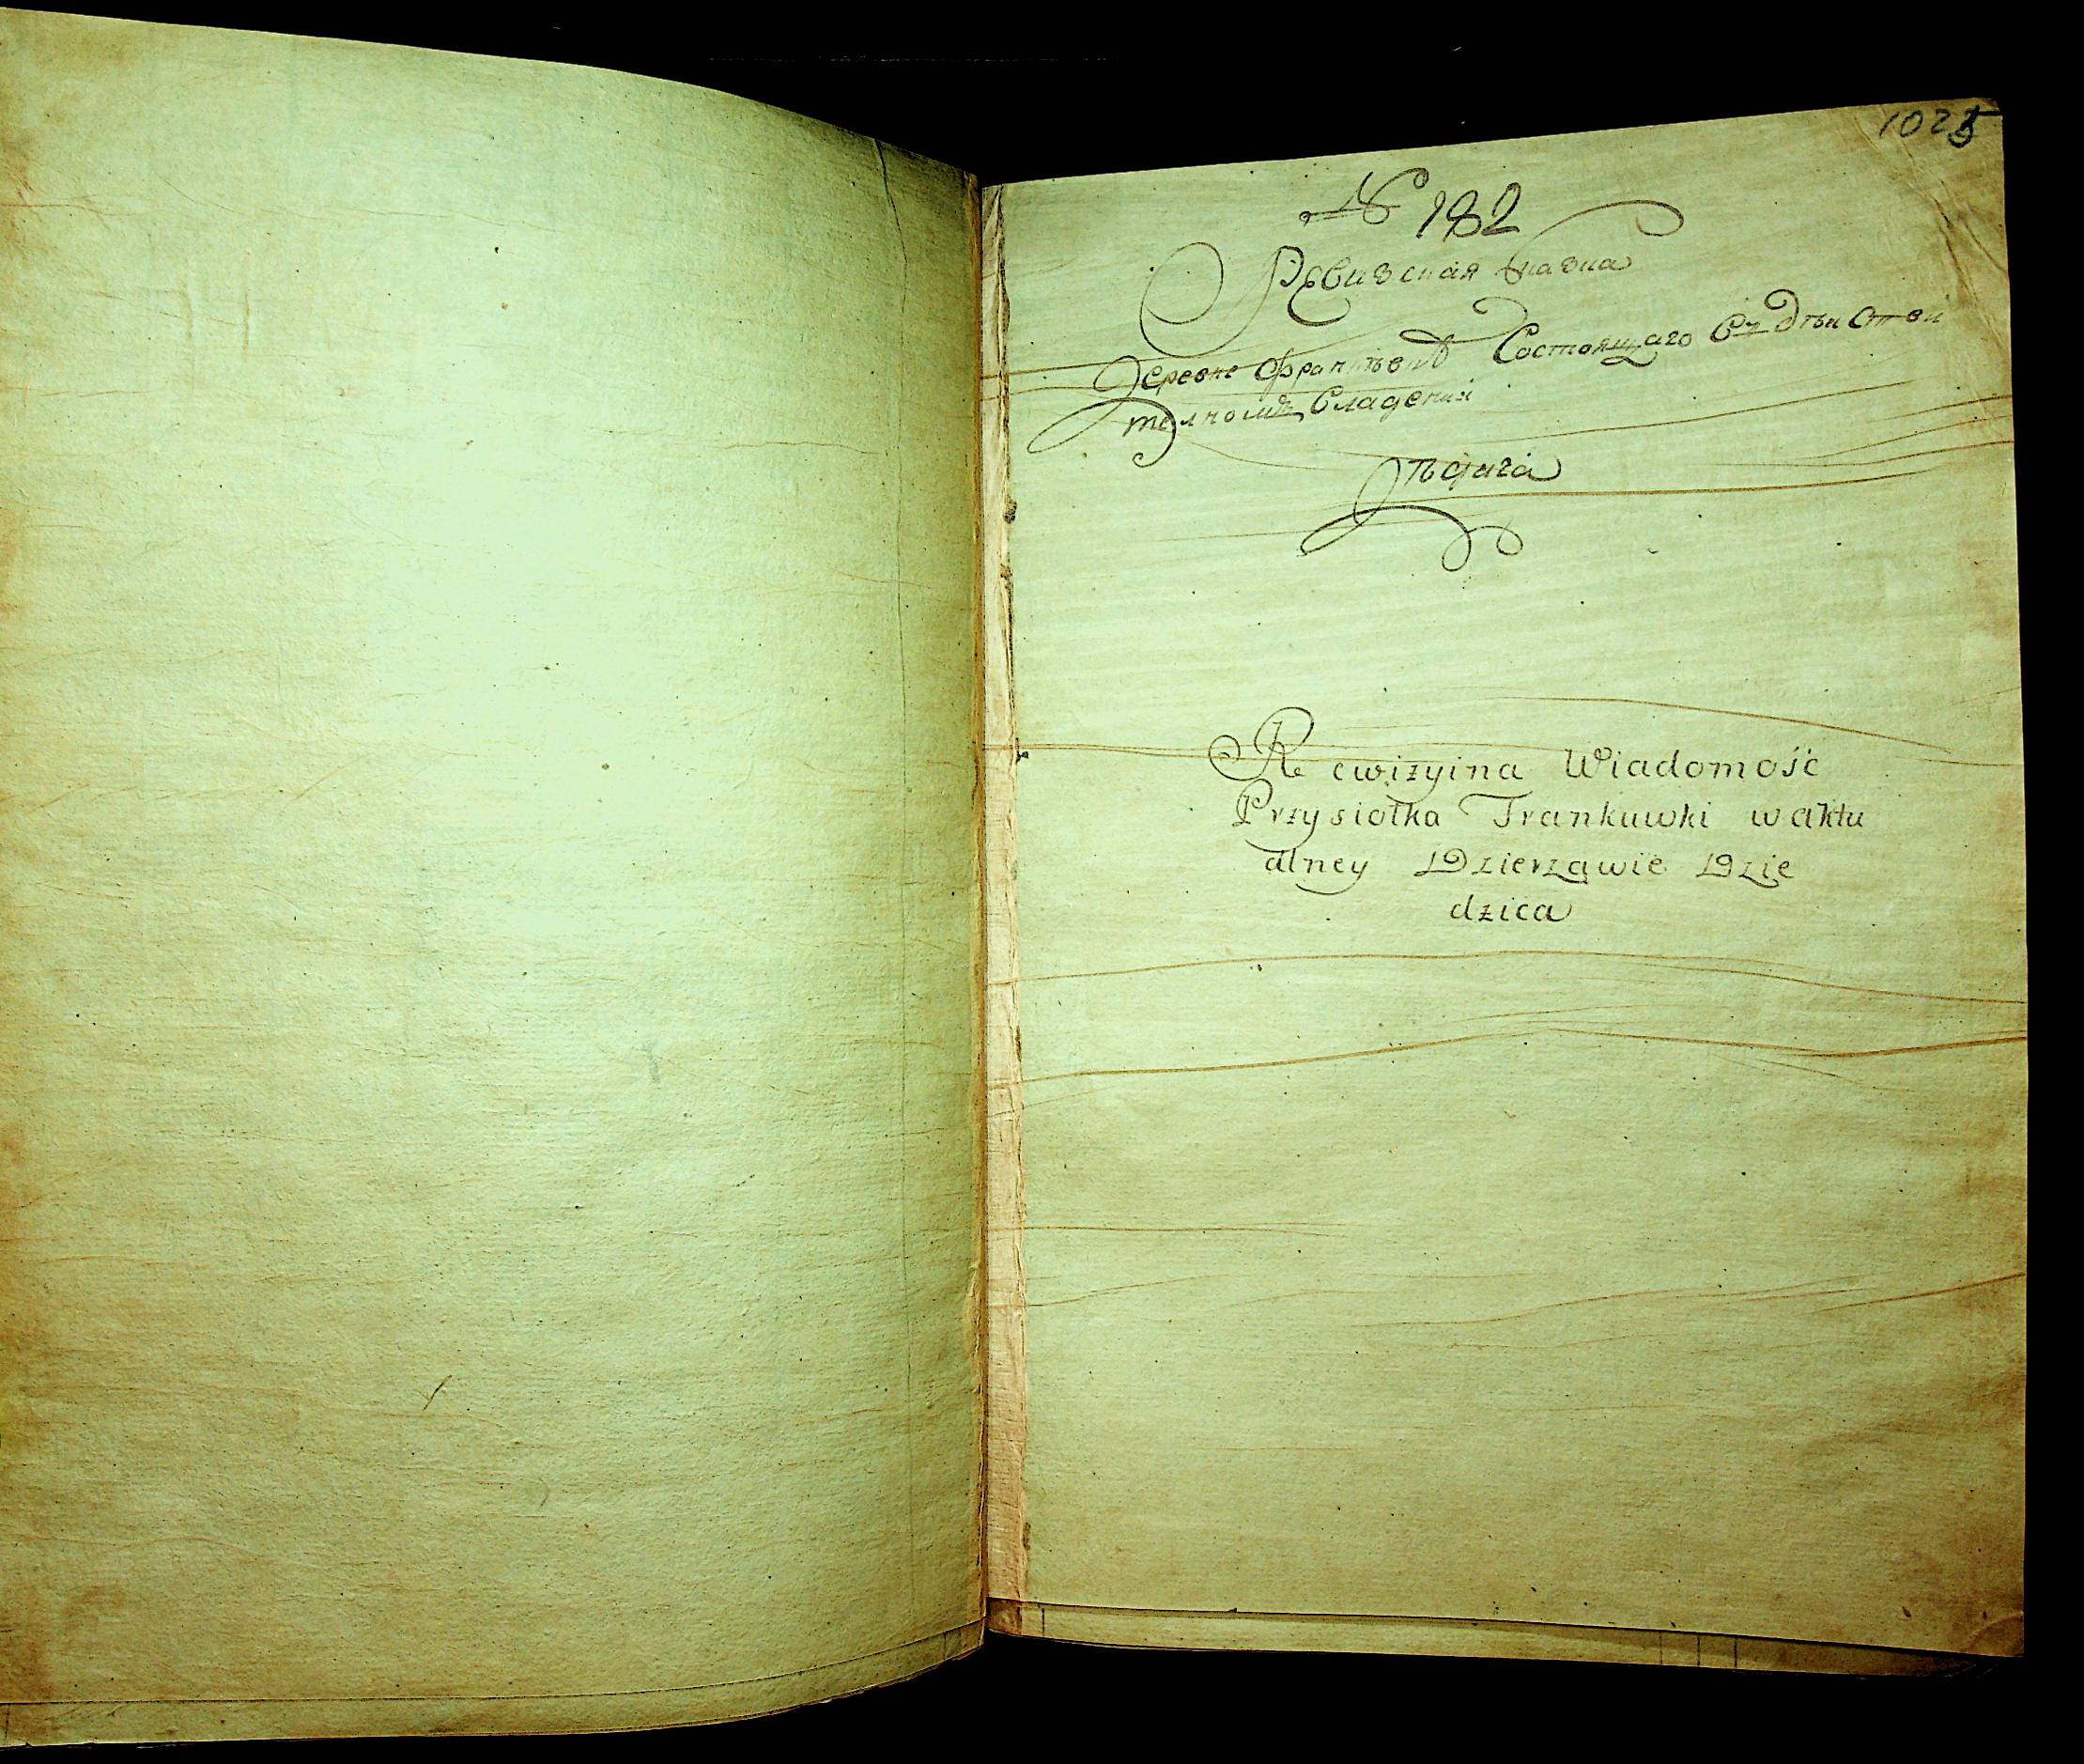 № 182
Ревизская сказка
Деревне Франковки Состоящаго въ дѣйстви
телномъ владении
дѣдича
Re ewizyina Wiadomość
Przysiołka Frankuwki w aktu
alney Dzierzawie Dzie
dzica